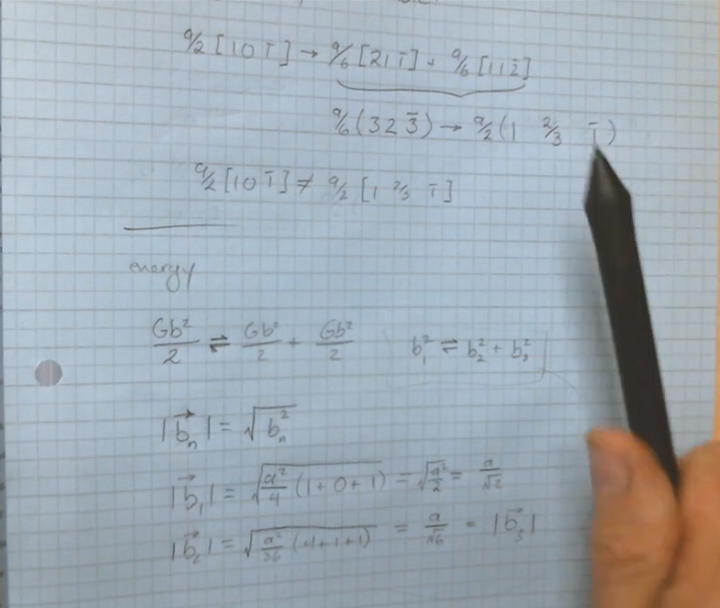 a/2 [1 0 1̅] → a/6 [2 1 1̅] + a/6 [1 1 2̅]
a/6 (3 2 3̅) → a/2 (1 2/3 1̅)
a/2 [1 0 1̅] ≠ a/2 [1 2/3 1̅]
energy
Gb²/2 ⇌ Gb²/2 + Gb²/2 b₁² ⇌ b₂² + b₃²
|b⃗ₙ| = √(bₙ²)
|b⃗₁| = √(a²/4 (1+0+1)) = √(a²/2) = a/√2
|b⃗₂| = √(a²/36 (4+1+1)) = a/√6 = |b⃗₃|